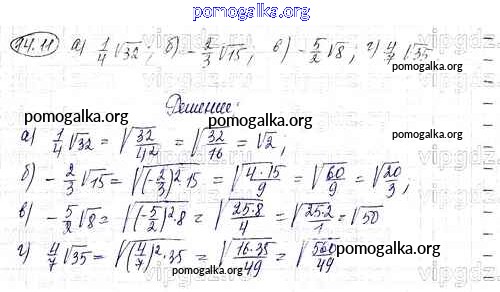 pomogalka.org
14.11 а) 1/4 √32; б) -2/3 √15; в) -5/2 √8; г) 4/7 √35
pomogalka.org
Решение:
pomogalka.org
а) 1/4 √32 = √(32/4²) = √(32/16) = √2;
б) -2/3 √15 = √((-2/3)²·15) = √(4·15/9) = √(60/9) = √(20/3);
в) -5/2 √8 = √((-5/2)²·8) = √(25·8/4) = √(25·2/1) = √50
г) 4/7 √35 = √((4/7)²·35) = √(16·35/49) = √(560/49)
pomogalka.org
pomogalka.org